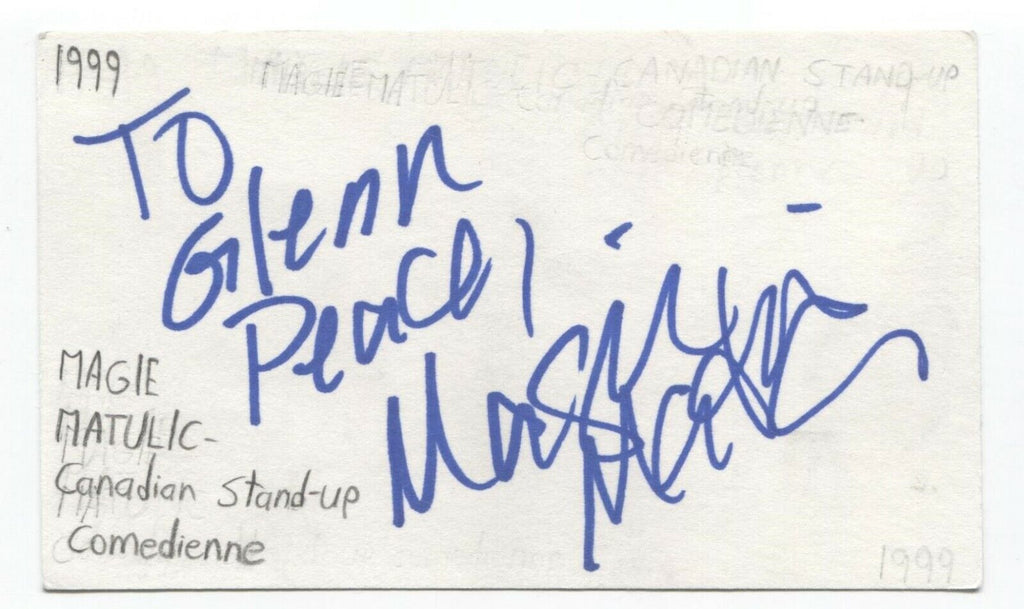 1999
MAGIE MATULIC - CANADIAN STAND-UP
COMEDIENNE
Comedienne
TO
Glenn
Peace!
MAGIE
MATULIC-
Canadian Stand-up
Comedienne
1999